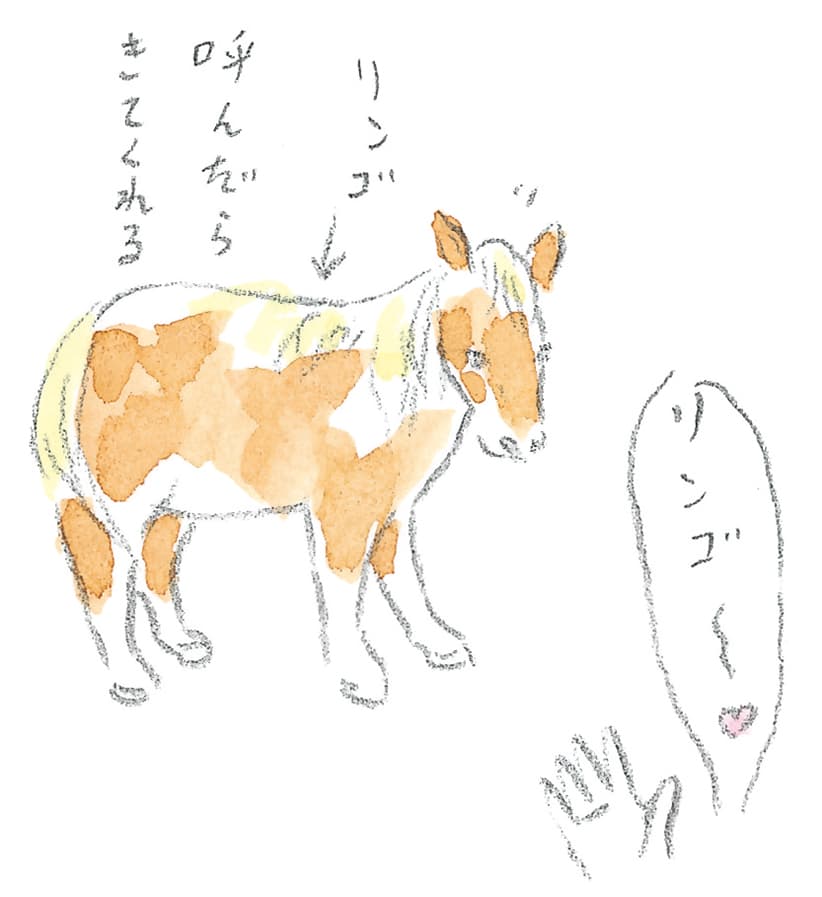 リンゴ
呼んだら
きてくれる
リンゴ〜